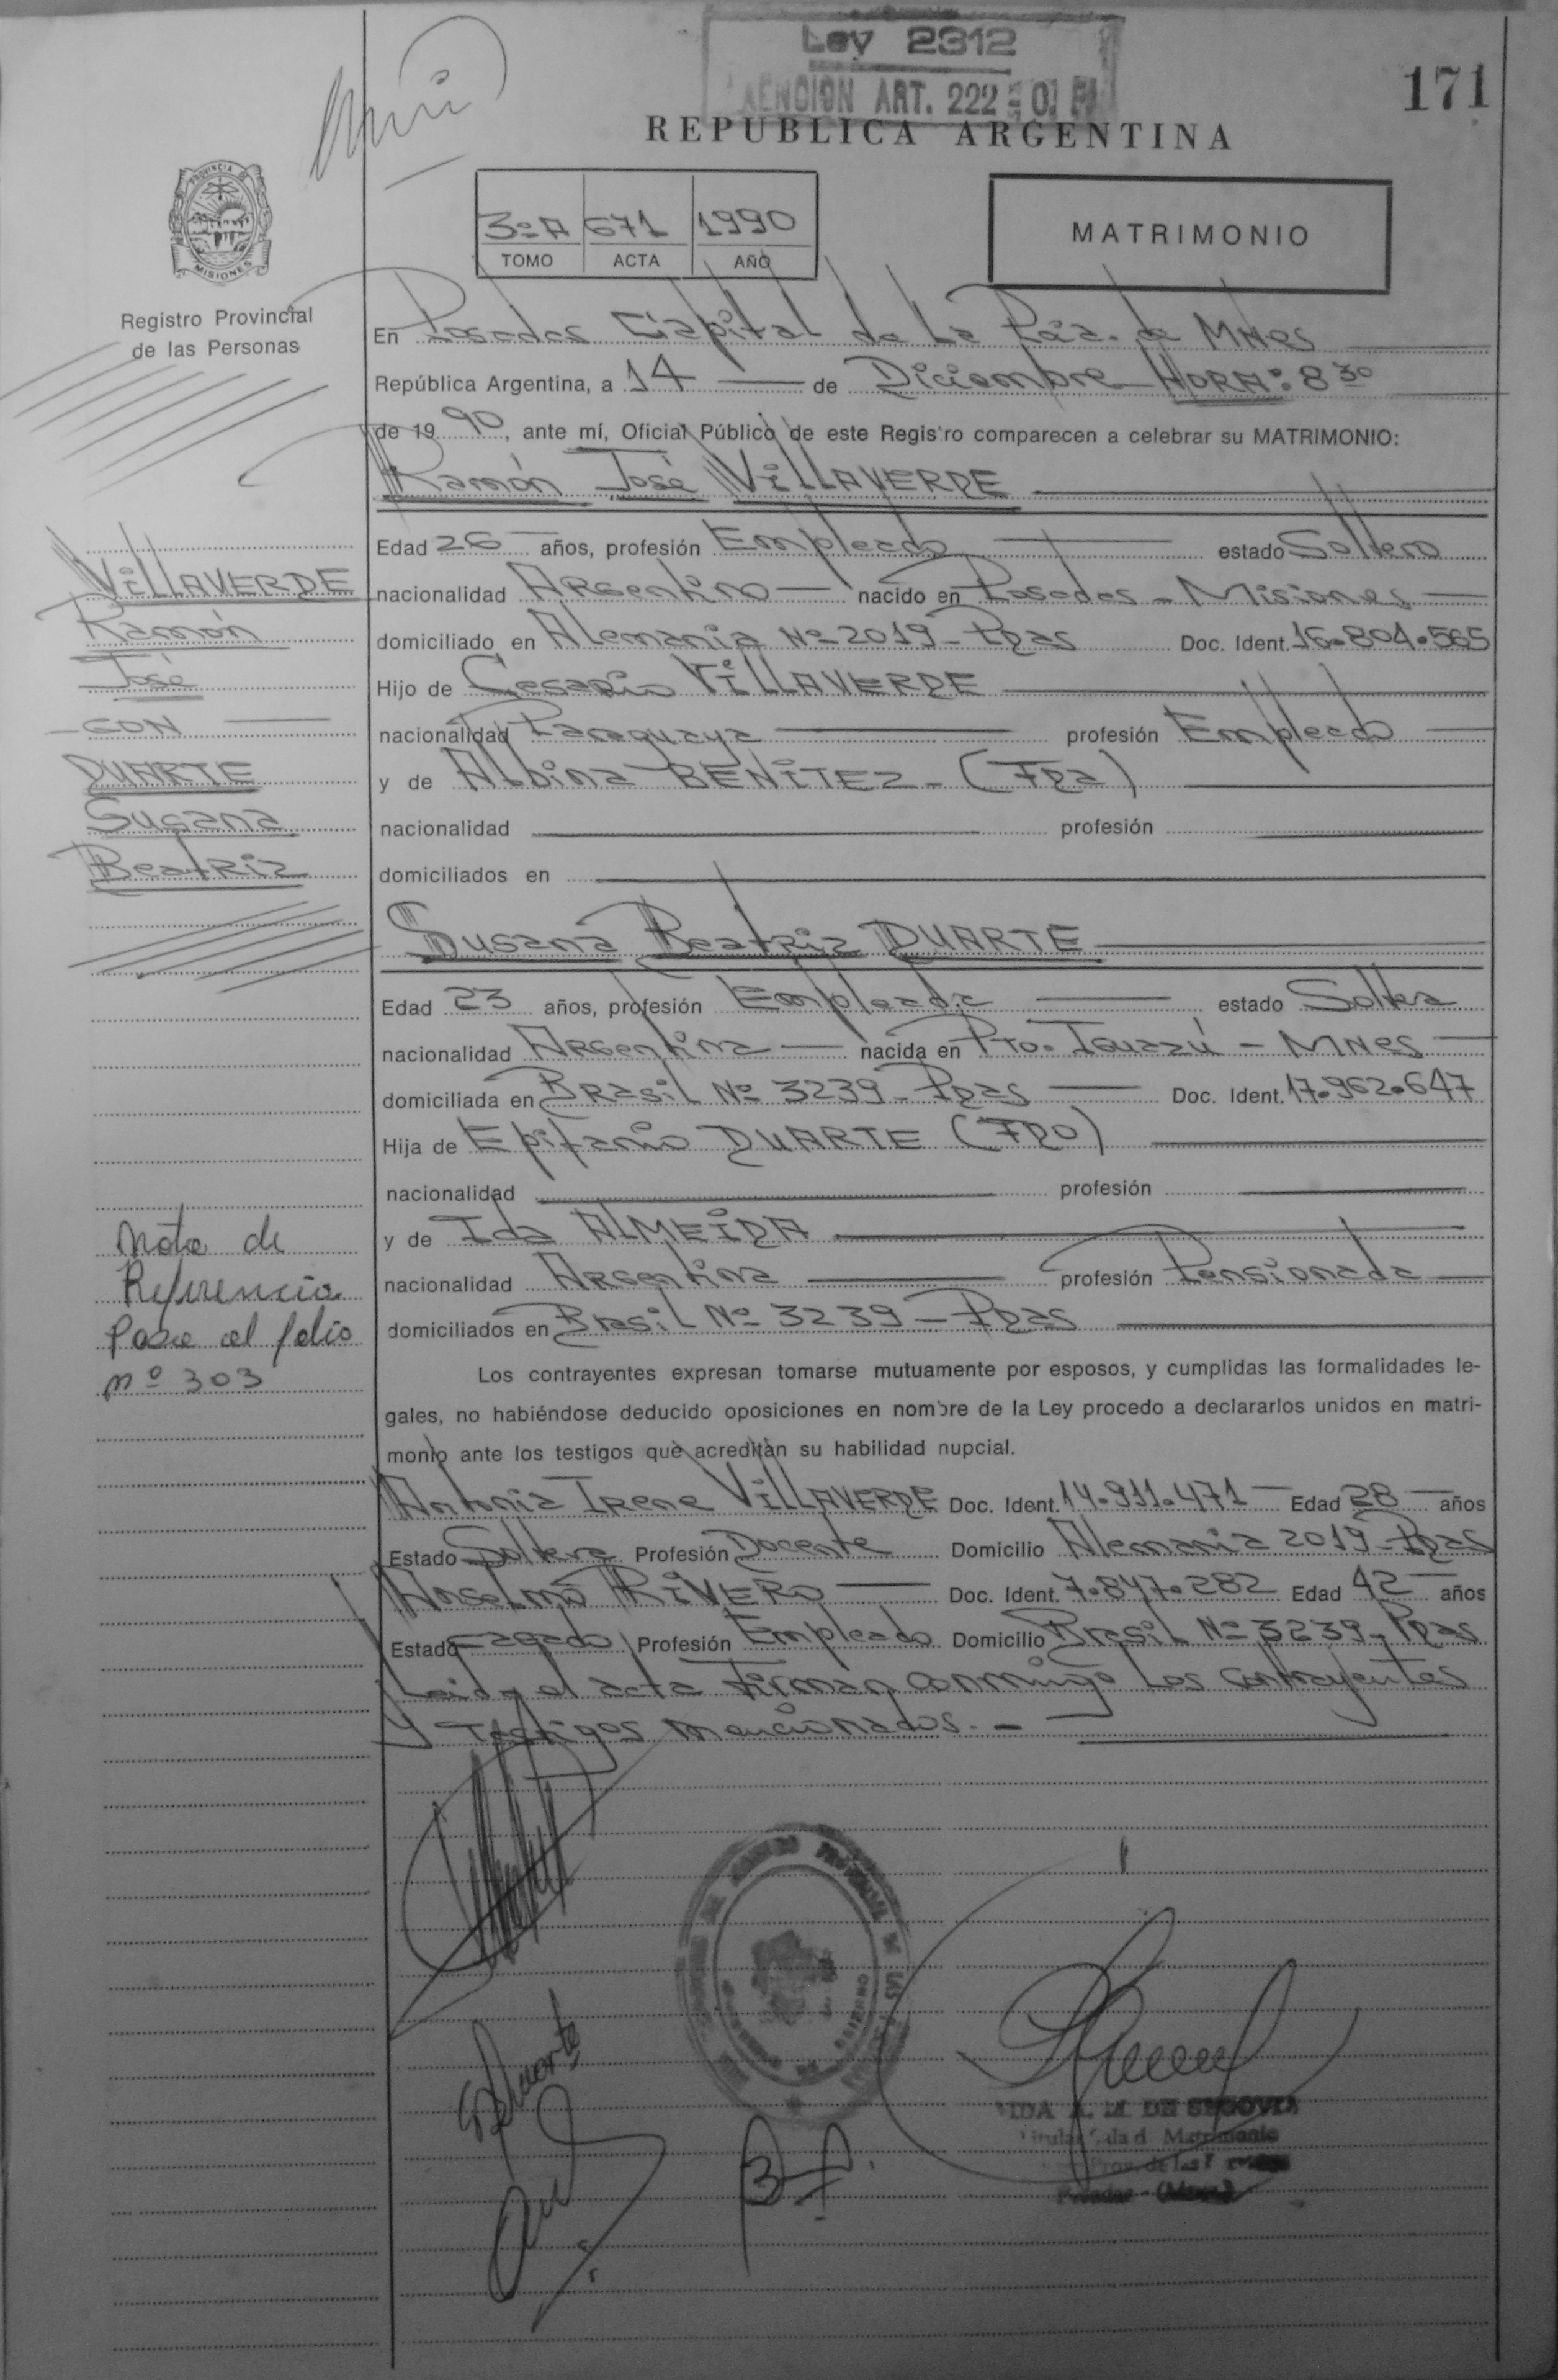 Ley 2312
ART. 222
171
REPUBLICA ARGENTINA
PROVINCIA DE
MISIONES
3º A 671 1990
TOMO ACTA AÑO
MATRIMONIO
Registro Provincial
de las Personas
En Posadas Capital de La Pcia. de MNes
República Argentina, a 14 de Diciembre HORA: 8 30
de 19 90, ante mí, Oficial Público de este Registro comparecen a celebrar su MATRIMONIO:
Ramón José VILLAVERDE
Edad 26 años, profesión Empleado estado Soltero
nacionalidad Argentino nacido en Posadas - Misiones
domiciliado en Alemania Nº 2019 - Pdas Doc. Ident. 16.804.565
Hijo de Cesario VILLAVERDE
nacionalidad Paraguaya profesión Empleado
y de Albina BENITEZ - (Fda)
nacionalidad profesión
domiciliados en
VILLAVERDE
Ramón
José
CON
DUARTE
Susana
Beatriz
Susana Beatriz DUARTE
Edad 23 años, profesión Empleada estado Soltera
nacionalidad Argentina nacida en Pto. Iguazú - MNes
domiciliada en Brasil Nº 3239 - Pdas Doc. Ident. 17.962.647
Hija de Epifanio DUARTE (FDO)
nacionalidad profesión
y de Ida ALMEIDA
nacionalidad Argentina profesión Pensionada
domiciliados en Brasil Nº 3239 - Pdas
Nota de
Referencia
Pase al folio
nº 303
Los contrayentes expresan tomarse mutuamente por esposos, y cumplidas las formalidades le-
gales, no habiéndose deducido oposiciones en nombre de la Ley procedo a declararlos unidos en matri-
monio ante los testigos que acreditan su habilidad nupcial.
Antonia Irene VILLAVERDE Doc. Ident. 14.911.471 Edad 28 años
Estado Soltera Profesión Docente Domicilio Alemania 2019 - Pdas
Anselmo RIVERO Doc. Ident. 7.847.282 Edad 42 años
Estado Casado Profesión Empleado Domicilio Brasil Nº 3239 - Pdas
Leida el acta firman conmigo los contrayentes
y testigos mencionados. -
SBDuarte
A. M. DE SEGOVIA
Titular Sala d Matrimonio
Prov. de las
Posadas - (Mnes)